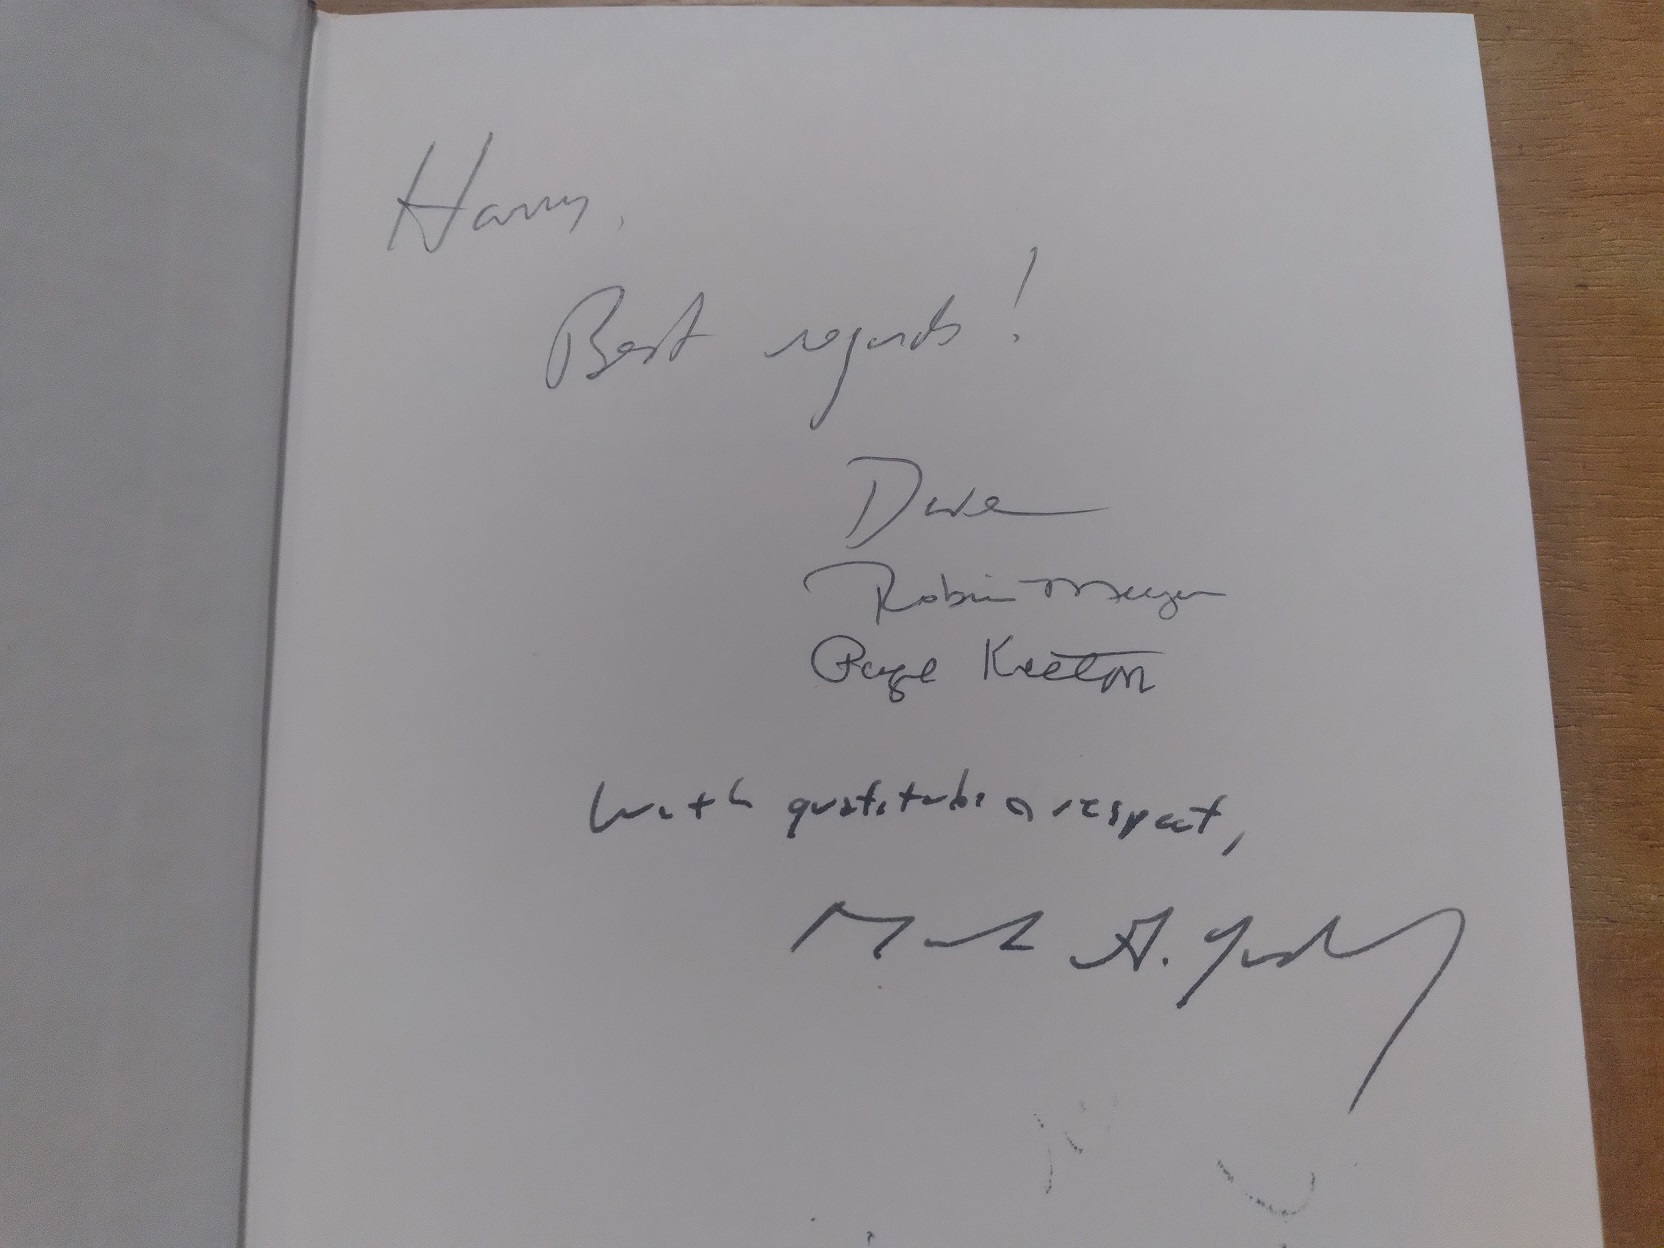 Harry,
Best regards!
Dave
Robin Meyer
Page Keeton
With gratitude & respect,
Mark A.